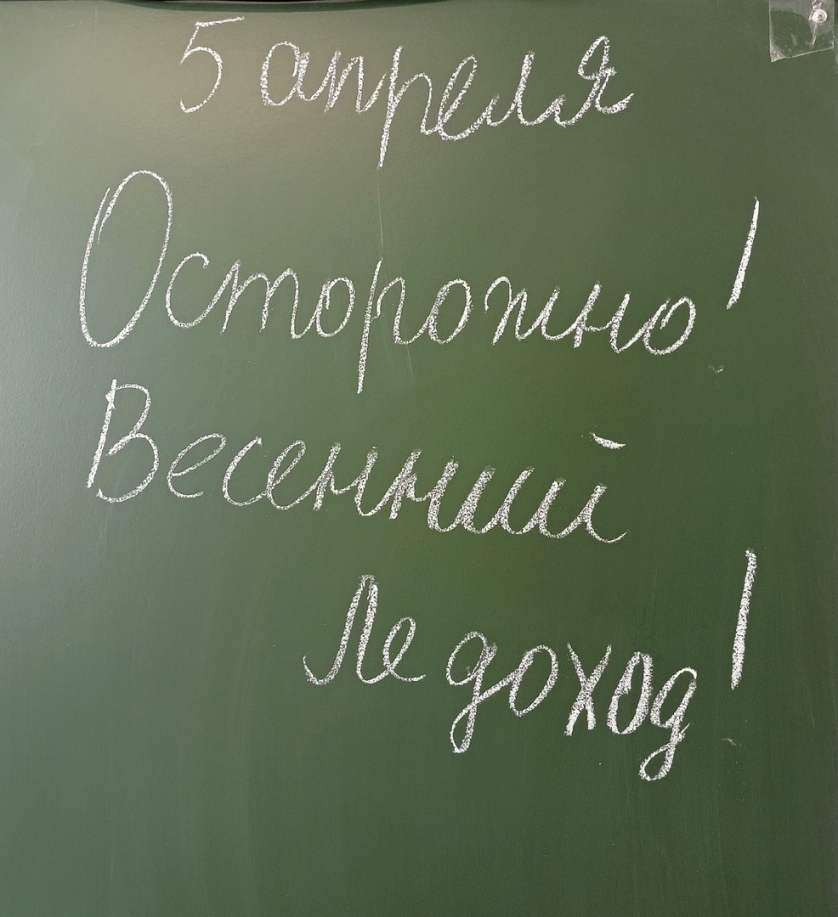 5 апреля
Осторожно!
Весенний
Ледоход!